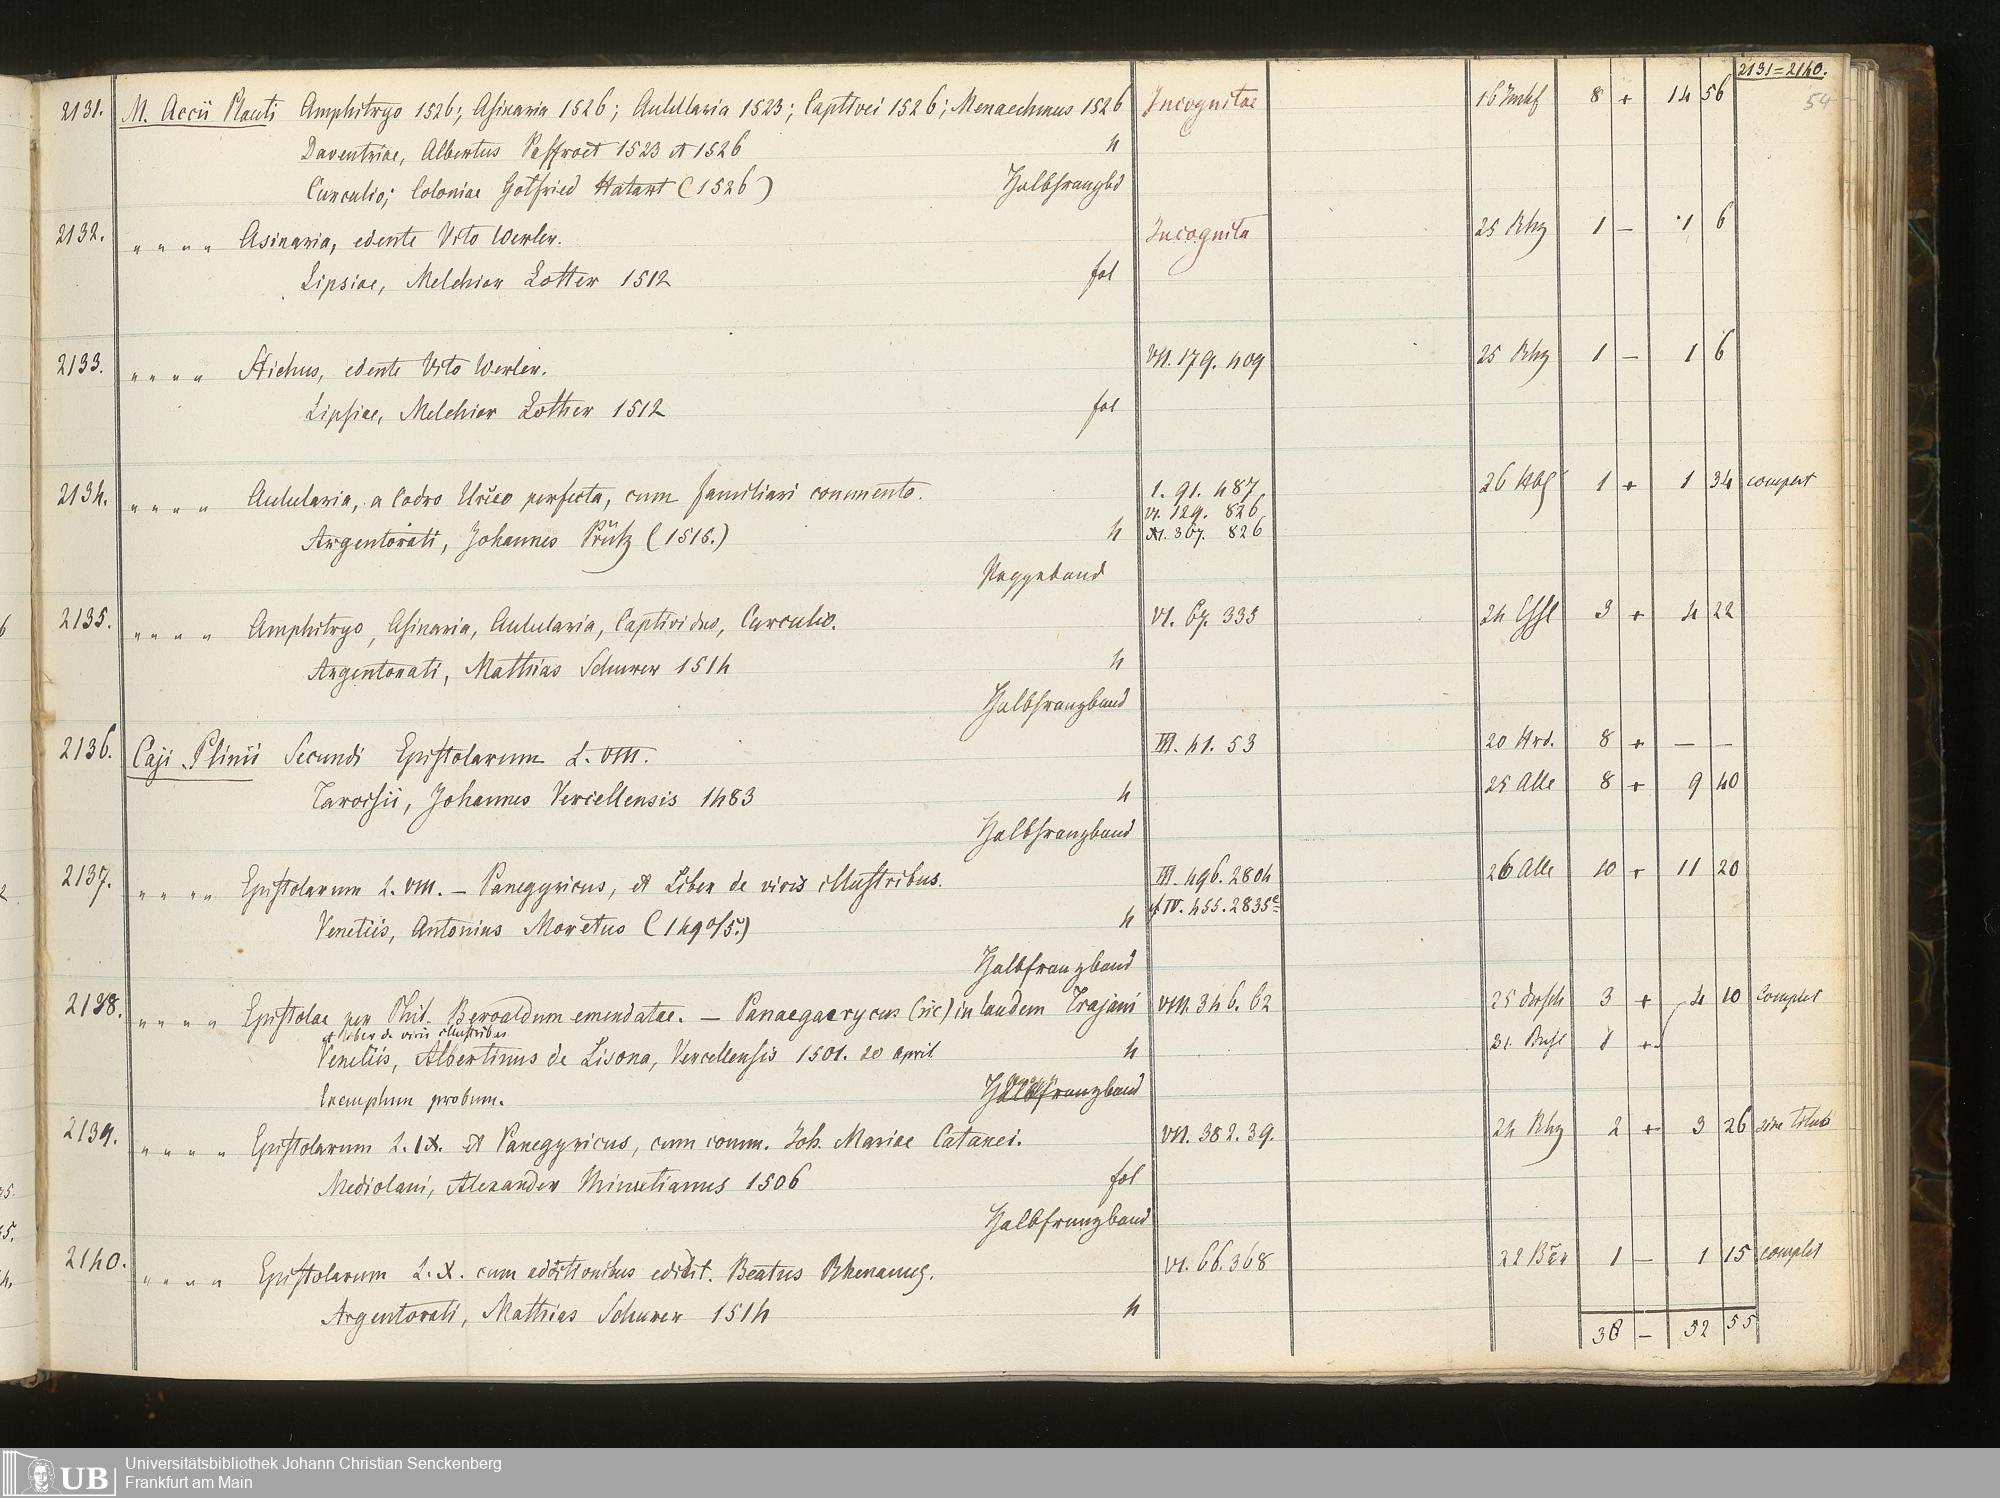 2131=2140.
54
2131. M. Accii Plauti Amphitryo 1526; Asinaria 1526; Aulularia 1523; Captivei 1526; Menaechmus 1526 Incognitae 8 + 14 56
Daventriae, Albertus Paffroet 1523 et 1526 4
Curculio; Coloniae Gotfried Hatart (1526) Halbfranzbd
2132. " " " " Asinaria, edente Vito Werler. Incognita 25 Rhz 1 – 1 6
Lipsiae, Melchior Lotter 1512 fol
2133. " " " " Stichus, edente Vito Werler. VII. 179. 409 25 Rhz 1 – 1 6
Lipsiae, Melchior Lother 1512 fol
2134. " " " " Aulularia, a Codro Urceo perfecta, cum familiari commento. I. 91. 487 1 + 1 34 complet
VI. 129. 826
Argentorati, Johannes Prütz (1515.) 4 XI. 367. 826
Pappband
2135. " " " " Amphitryo, Asinaria, Aulularia, Captivi duo, Curculio. VI. 67. 335 24 3 + 4 22
Argentorati, Mathias Schurer 1514 4
Halbfranzband
2136. Caji Plinii Secundi Epistolarum L. VIII. III. 41. 53 20 Hrd. 8 + – –
Tarvisii, Johannes Vercellensis 1483 4 25 Alle 8 + 9 40
Halbfranzband
2137. " " " " Epistolarum L. VIII. – Panegyricus, et Liber de viris illustribus. III. 496. 2804 26 Alle 10 + 11 20
Venetiis, Antonius Moretus (1490/5.) 4 cf IV. 455. 2835c
Halbfranzband
2138. " " " " Epistolae per Phil. Beroaldum emendatae. – Panaegaerycus (sic) in laudem Trajani VIII. 346. 62 25 dorsch 3 + 4 10 Complet
et Liber de viris illustribus
Venetiis, Albertinus de Lisona, Vercellensis 1501. 20 April 4 1 +
Exemplum probum. Halbfranzband
2139. " " " " Epistolarum L. IX. et Panegyricus, cum comm. Joh. Mariae Catanei. VII. 382. 39. 24 Rhz 2 + 3 26 sine titulo
Mediolani, Alexander Minutianus 1506 fol
Halbfranzband
2140. " " " " Epistolarum L. X. cum additionibus edidit. Beatus Rhenanus. VI. 66. 368 22 1 – 1 15 complet
Argentorati, Mathias Schurer 1514 4
38 – 52 55
UB Universitätsbibliothek Johann Christian Senckenberg
Frankfurt am Main